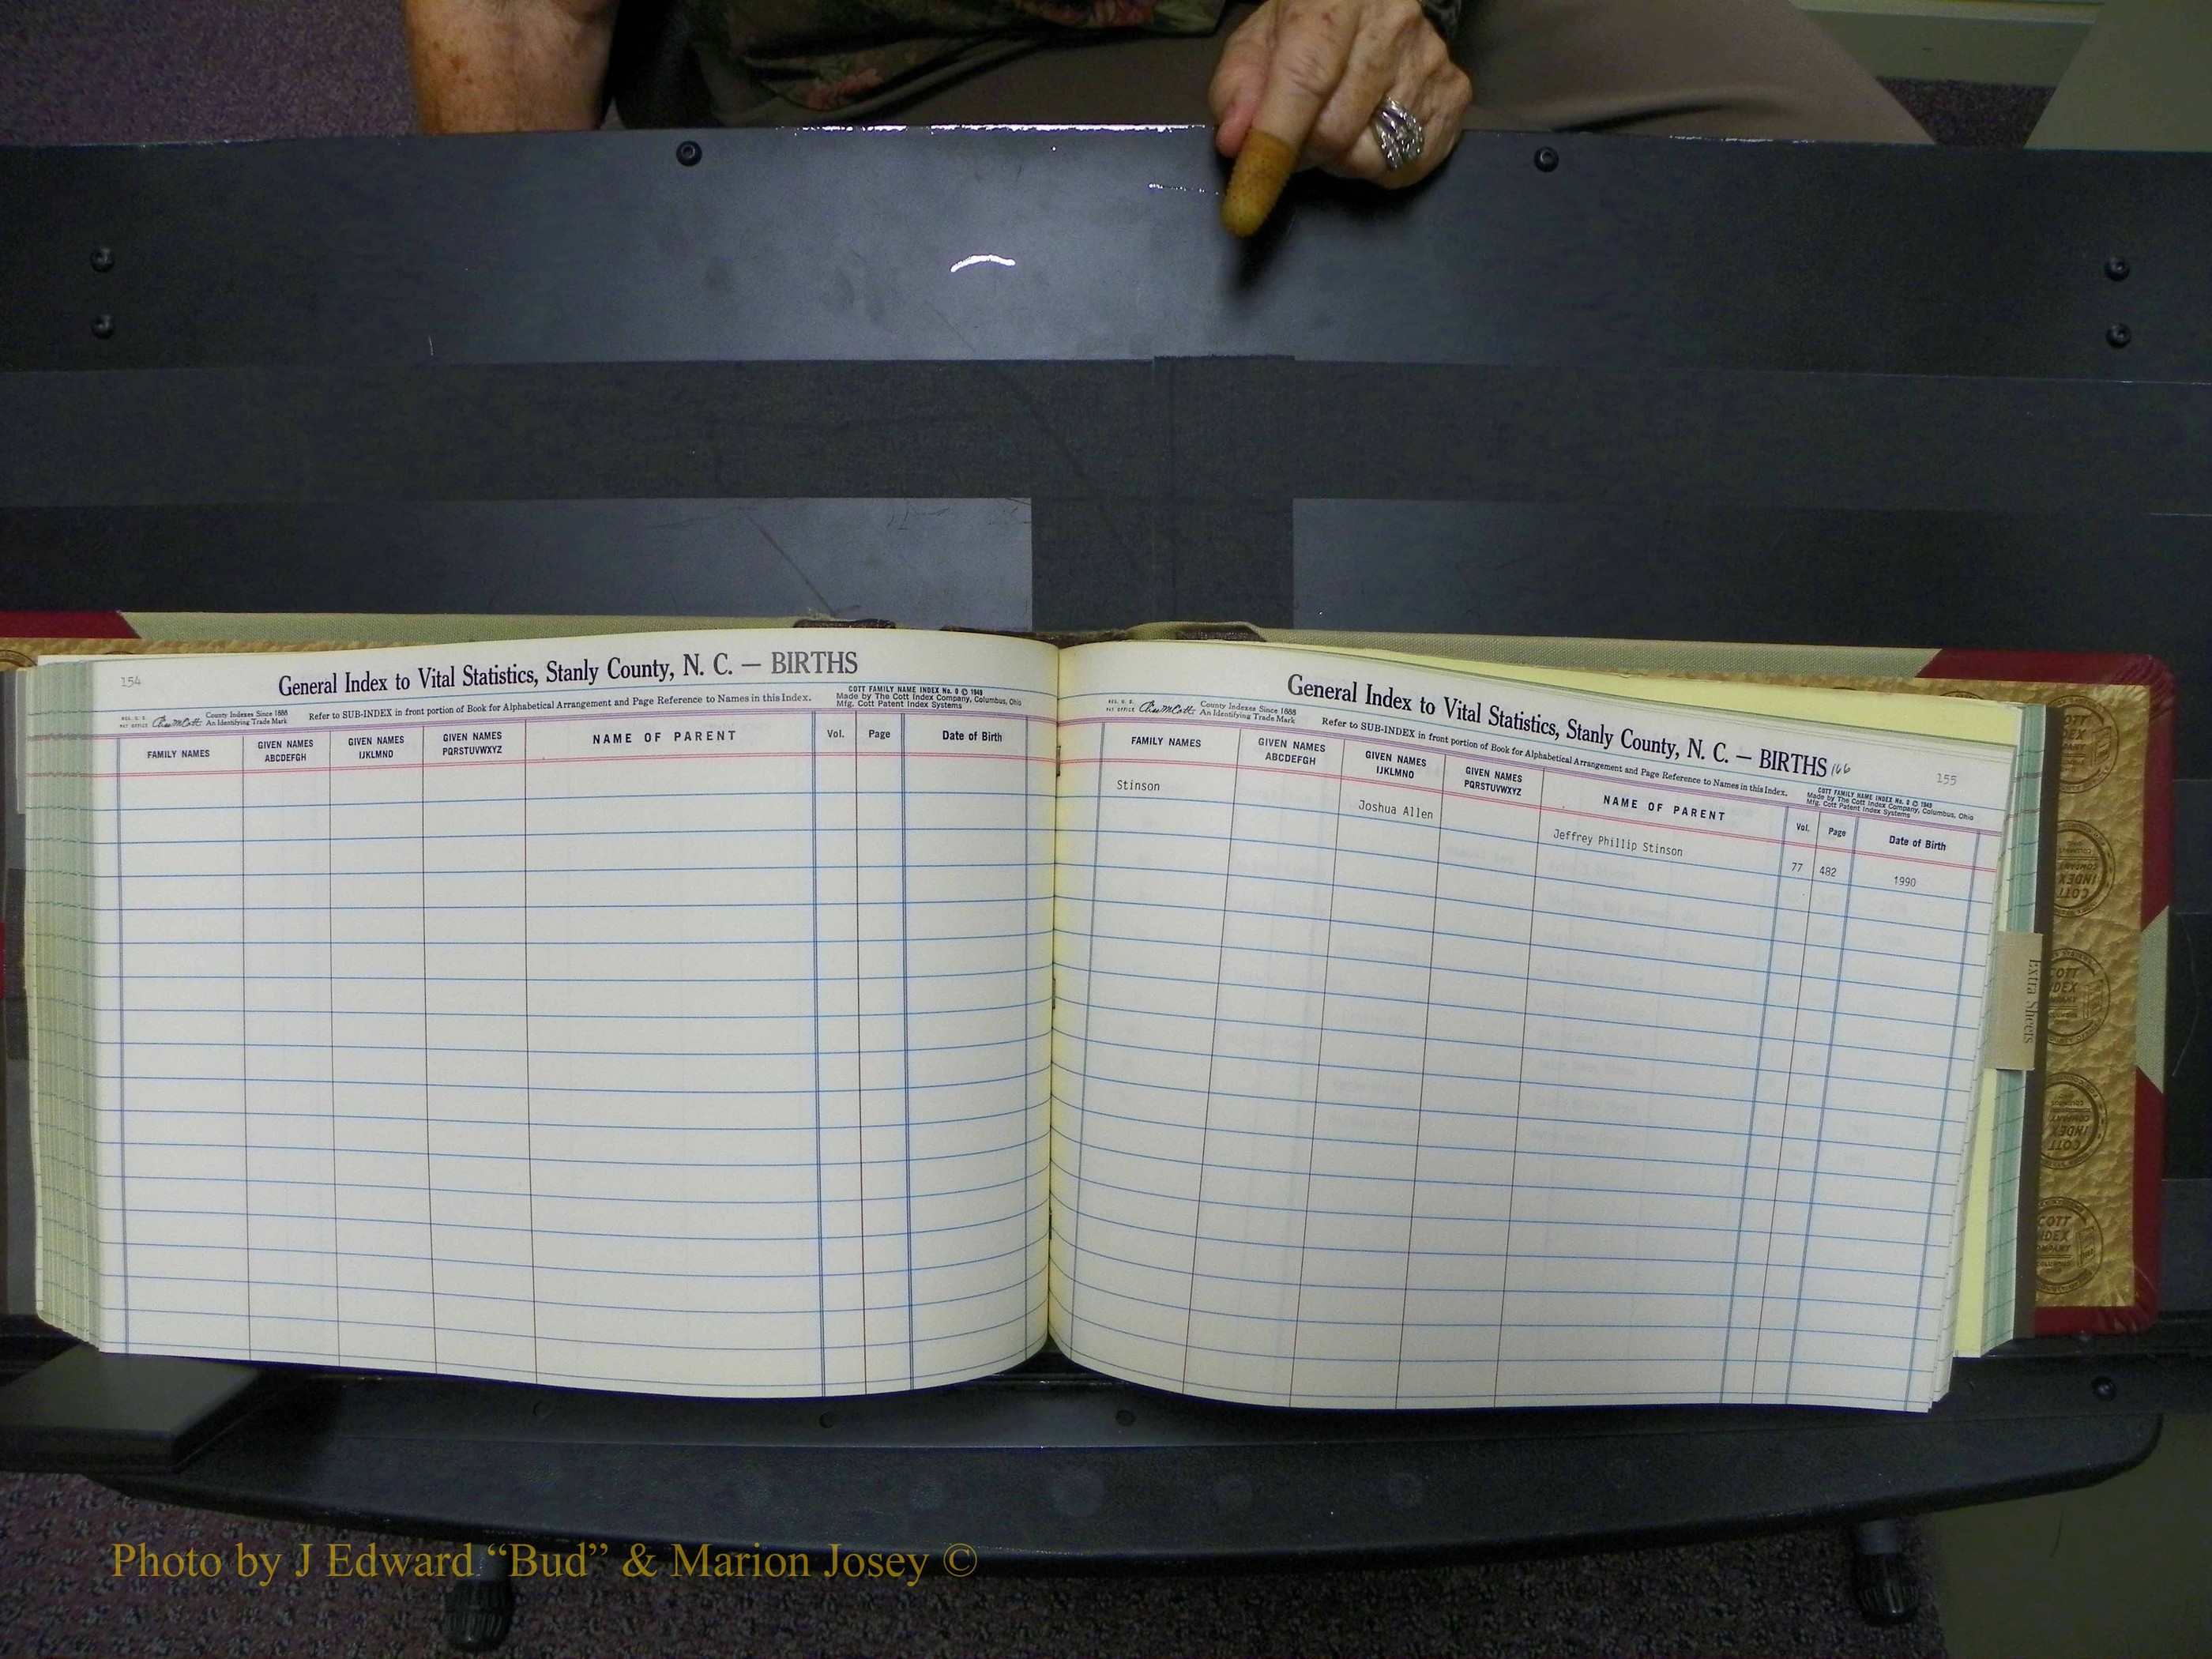 154
General Index to Vital Statistics, Stanly County, N. C. — BIRTHS
COTT FAMILY NAME INDEX No. 8 © 1949
Made by The Cott Index Company, Columbus, Ohio
Mfg. Cott Patent Index Systems
REG. U. S.
PAT OFFICE
County Indexes Since 1888
An Identifying Trade Mark
Refer to SUB-INDEX in front portion of Book for Alphabetical Arrangement and Page Reference to Names in this Index.
FAMILY NAMES GIVEN NAMES ABCDEFGH GIVEN NAMES IJKLMNO GIVEN NAMES PQRSTUVWXYZ NAME OF PARENT Vol. Page Date of Birth
General Index to Vital Statistics, Stanly County, N. C. — BIRTHS 166
155
REG. U. S.
PAT OFFICE
County Indexes Since 1888
An Identifying Trade Mark
Refer to SUB-INDEX in front portion of Book for Alphabetical Arrangement and Page Reference to Names in this Index.
COTT FAMILY NAME INDEX No. 8 © 1949
Made by The Cott Index Company, Columbus, Ohio
Mfg. Cott Patent Index Systems
FAMILY NAMES GIVEN NAMES ABCDEFGH GIVEN NAMES IJKLMNO GIVEN NAMES PQRSTUVWXYZ NAME OF PARENT Vol. Page Date of Birth
Stinson Joshua Allen Jeffrey Phillip Stinson 77 482 1990
Extra Sheets
COTT
INDEX
COMPANY
Photo by J Edward “Bud” & Marion Josey ©